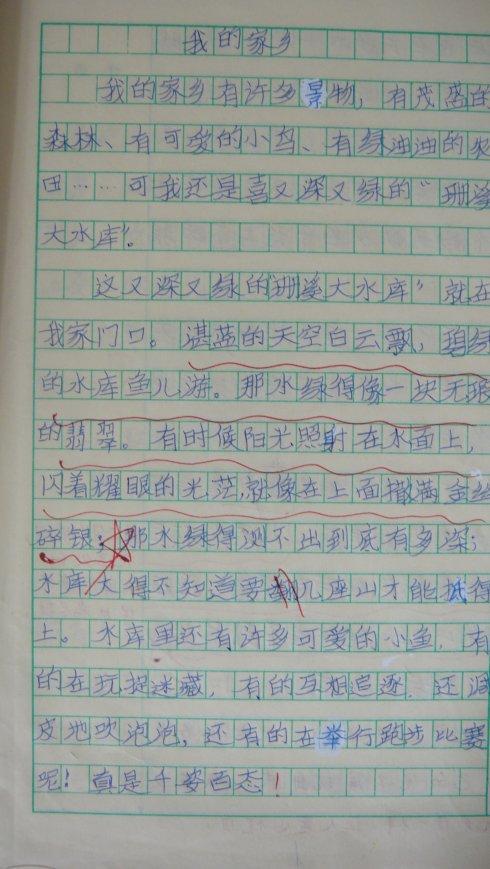 我的家乡
我的家乡有许多景物，有茂盛的
森林、有可爱的小鸟、有绿油油的农
田……可我还是喜又深又绿的“珊溪
大水库”。
这又深又绿的“珊溪大水库”就在
我家门口。湛蓝的天空白云飘，碧绿
的水库鱼儿游。那水绿得像一块无瑕
的翡翠。有时候阳光照射在水面上，
闪着耀眼的光茫，就像在上面撒满金丝
碎银；那水绿得测不出到底有多深；
水库大得不知道要翻几座山才能抵得
上。水库里还有许多可爱的小鱼，有
的在玩捉迷藏，有的互相追逐，还调
皮地吹泡泡，还有的在举行跑步比赛
呢！真是千姿百态！